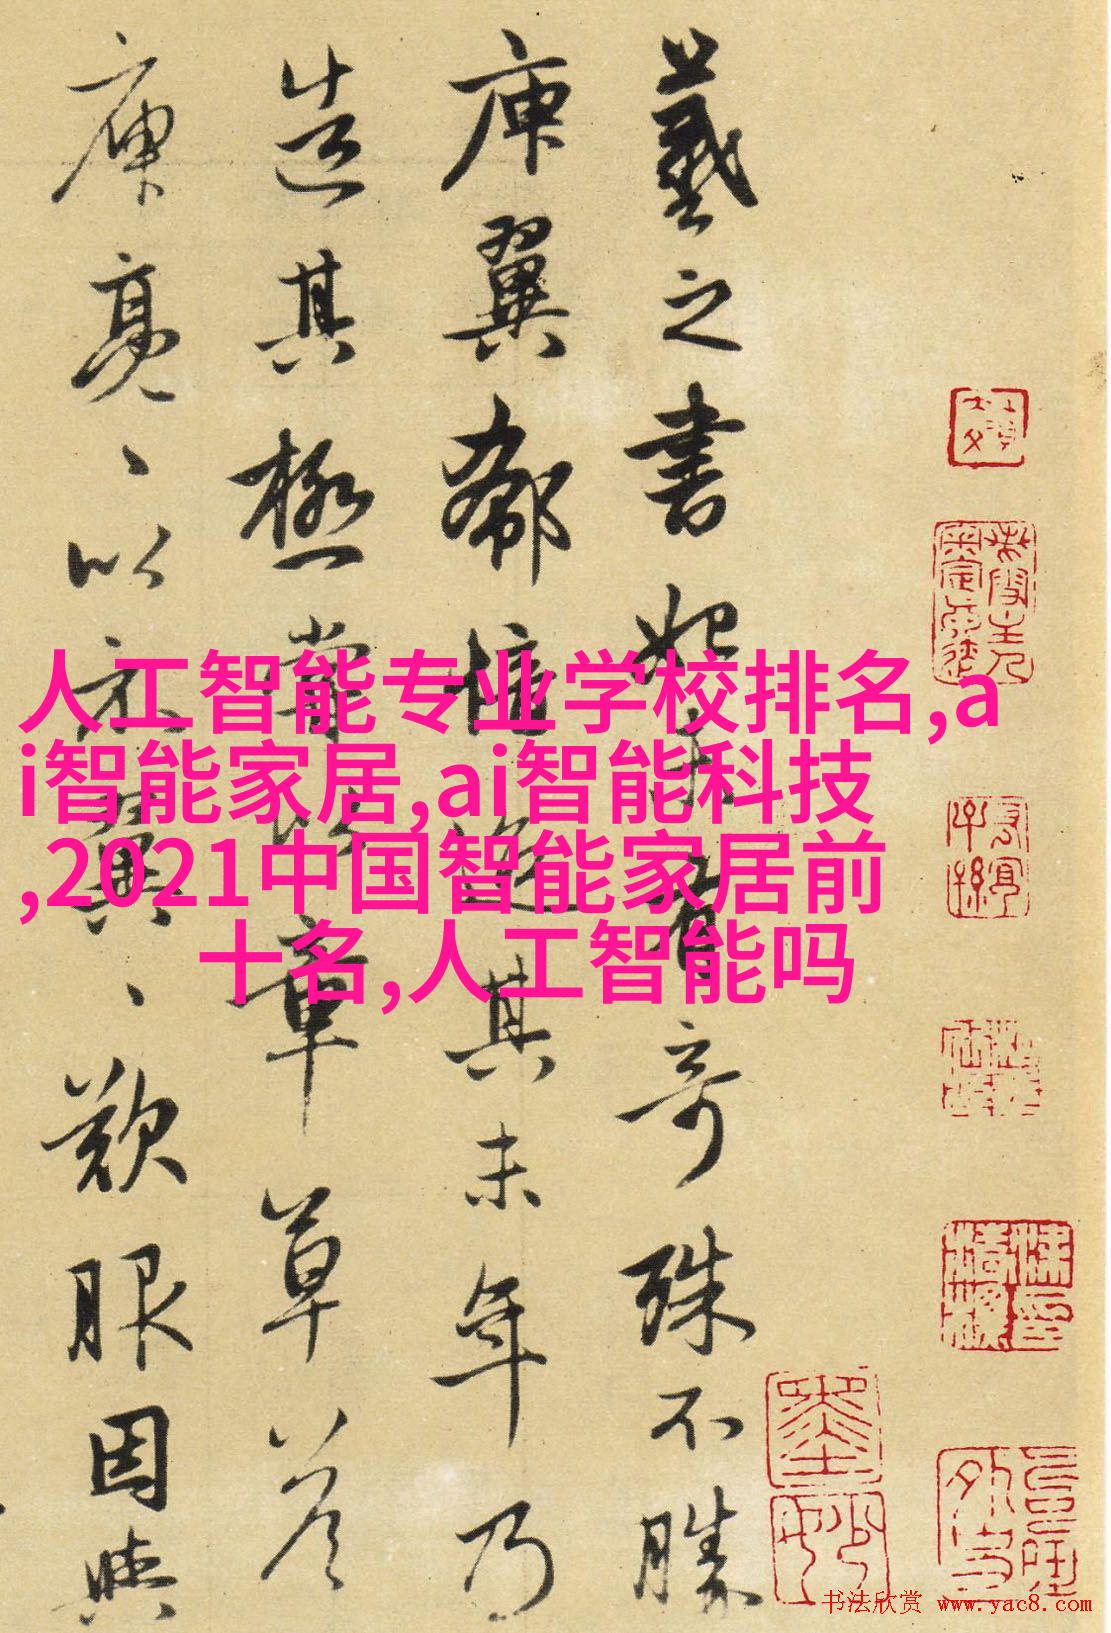 羲之書始未有奇殊不勝
庾翼郗愔迨其末年乃
造其極嘗以章草答
庾亮、以示翼、歎服因與
人工智能专业学校排名,a
i智能家居,ai智能科技
,2021中国智能家居前
十名,人工智能吗
书法欣赏 www.yac8.com